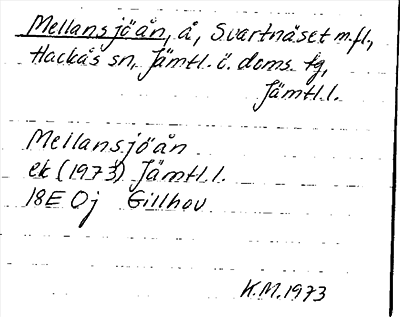 Mellansjöån, å, Svartnäset m.fl,
Hackås sn, Jämtl. ö. doms. tg,
Jämtl.l.
Mellansjöån
ek (1973) Jämtl.l.
18E 0j Gillhov
K.M.1973